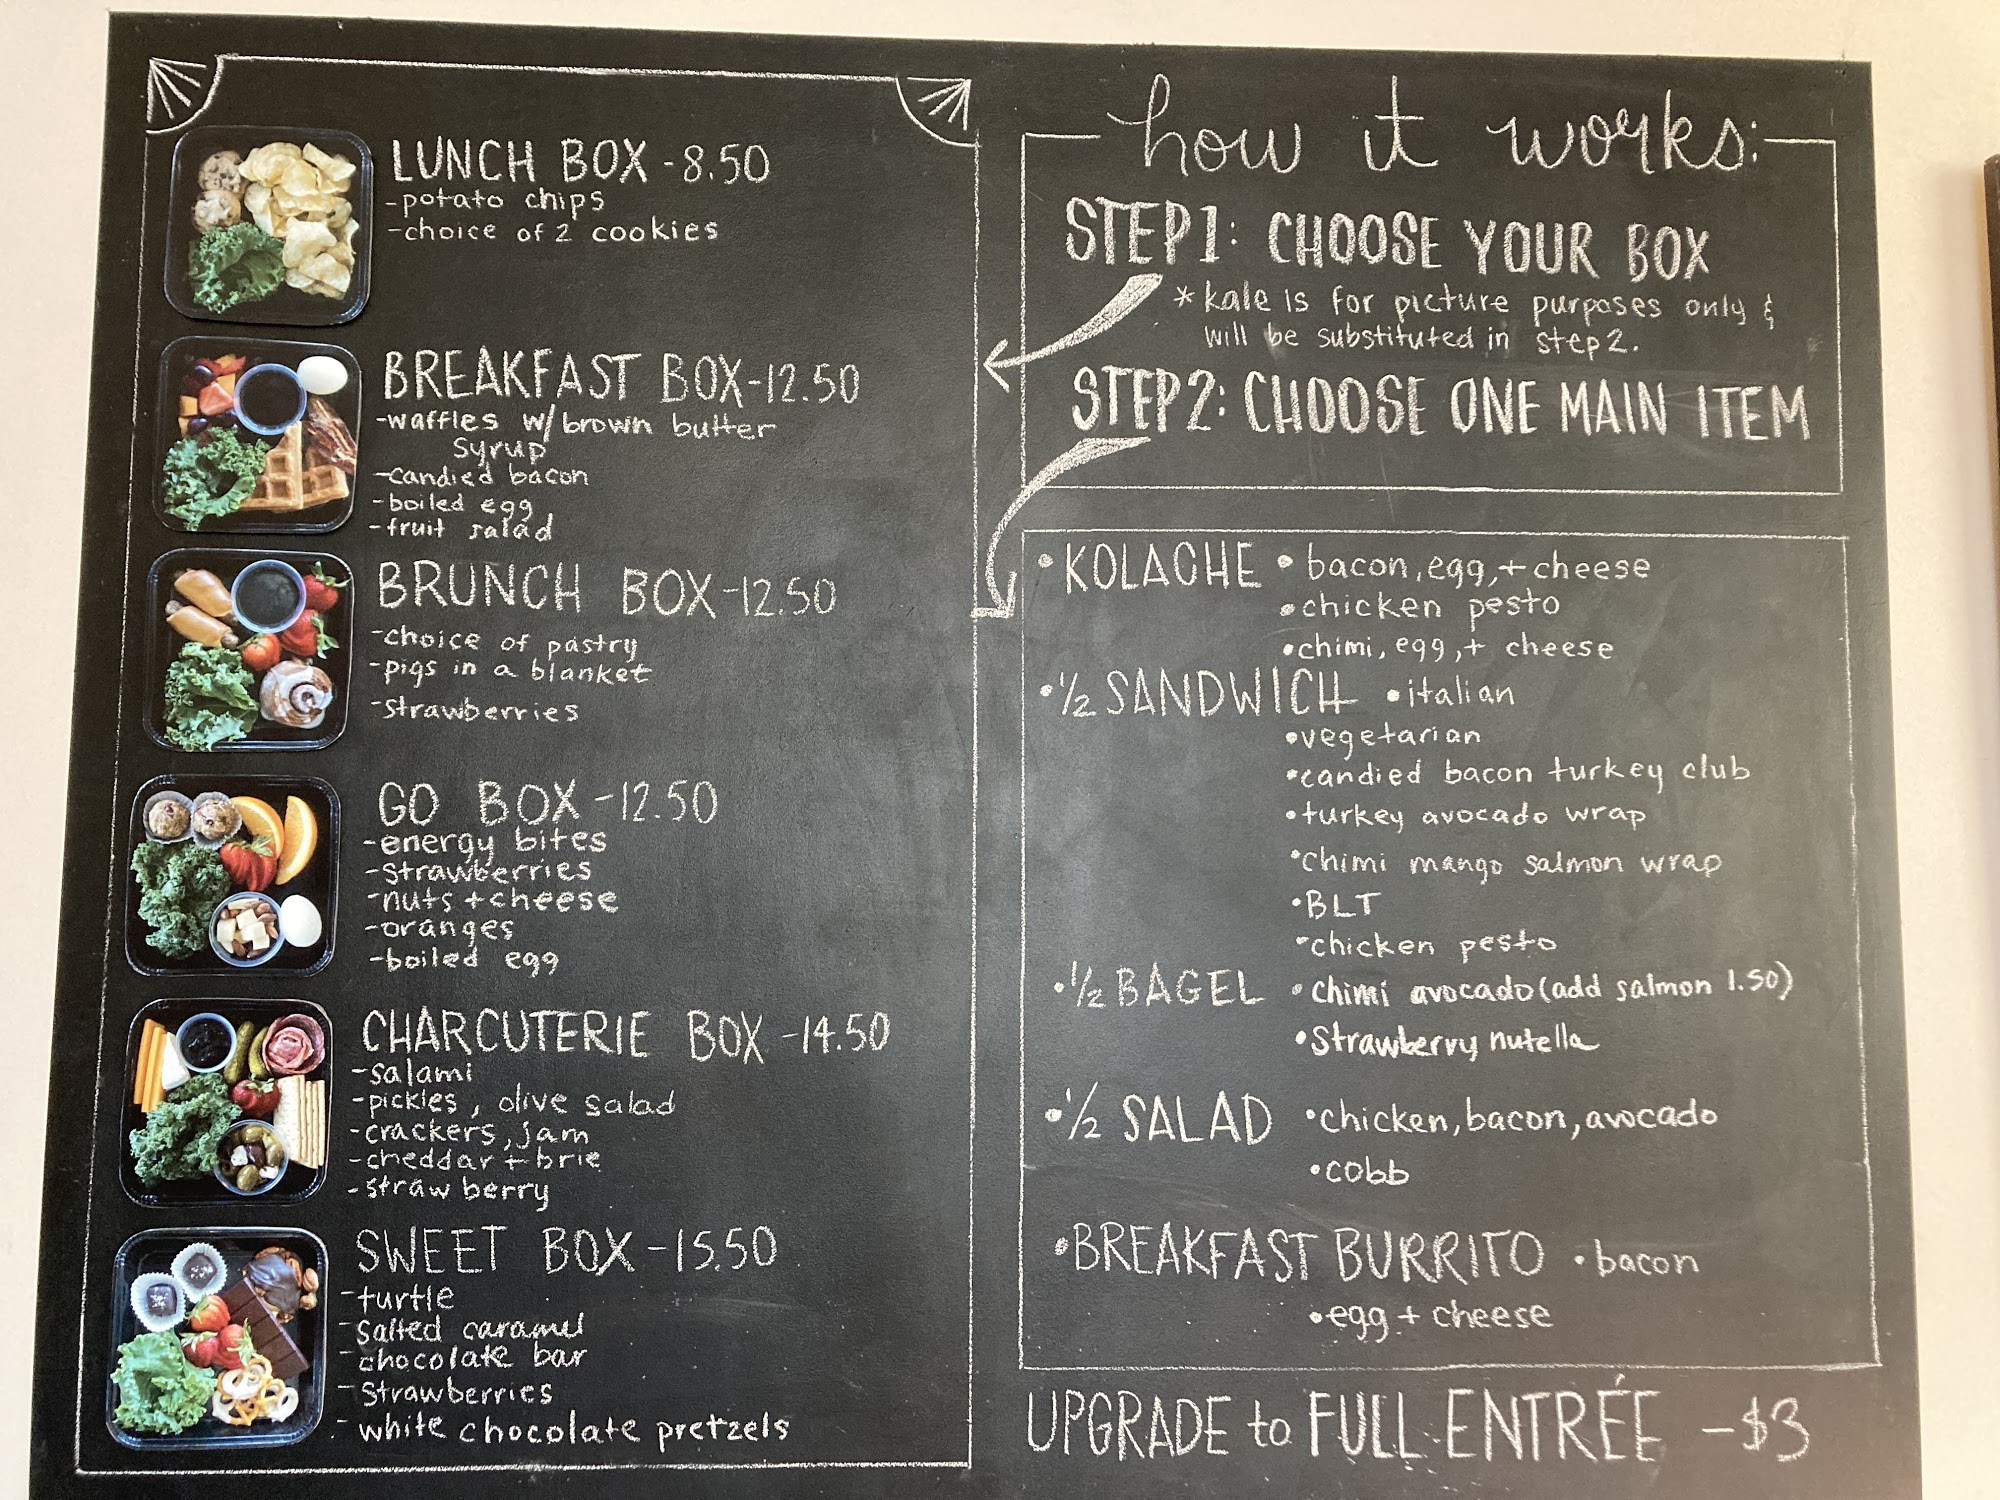 LUNCH BOX -8.50
-potato chips
-choice of 2 cookies
BREAKFAST BOX-12.50
-waffles w/brown butter
syrup
-candied bacon
-boiled egg
-fruit salad
BRUNCH BOX-12.50
-choice of pastry
-pigs in a blanket
-strawberries
GO BOX -12.50
-energy bites
-strawberries
-nuts+cheese
-oranges
-boiled egg
CHARCUTERIE BOX -14.50
-salami
-pickles, olive salad
-crackers, jam
-cheddar + brie
-strawberry
SWEET BOX -15.50
-turtle
-salted caramel
-chocolate bar
-strawberries
-white chocolate pretzels
how it works:
STEP1: CHOOSE YOUR BOX
*kale is for picture purposes only &
will be substituted in step 2.
STEP2: CHOOSE ONE MAIN ITEM
•KOLACHE •bacon, egg,+cheese
•chicken pesto
•chimi, egg,+ cheese
•½ SANDWICH •italian
•vegetarian
•candied bacon turkey club
•turkey avocado wrap
•chimi mango salmon wrap
•BLT
•chicken pesto
•½ BAGEL •chimi avocado(add salmon 1.50)
•Strawberry nutella
•½ SALAD •chicken, bacon, avocado
•cobb
•BREAKFAST BURRITO •bacon
•egg + cheese
UPGRADE to FULL ENTRÉE -$3